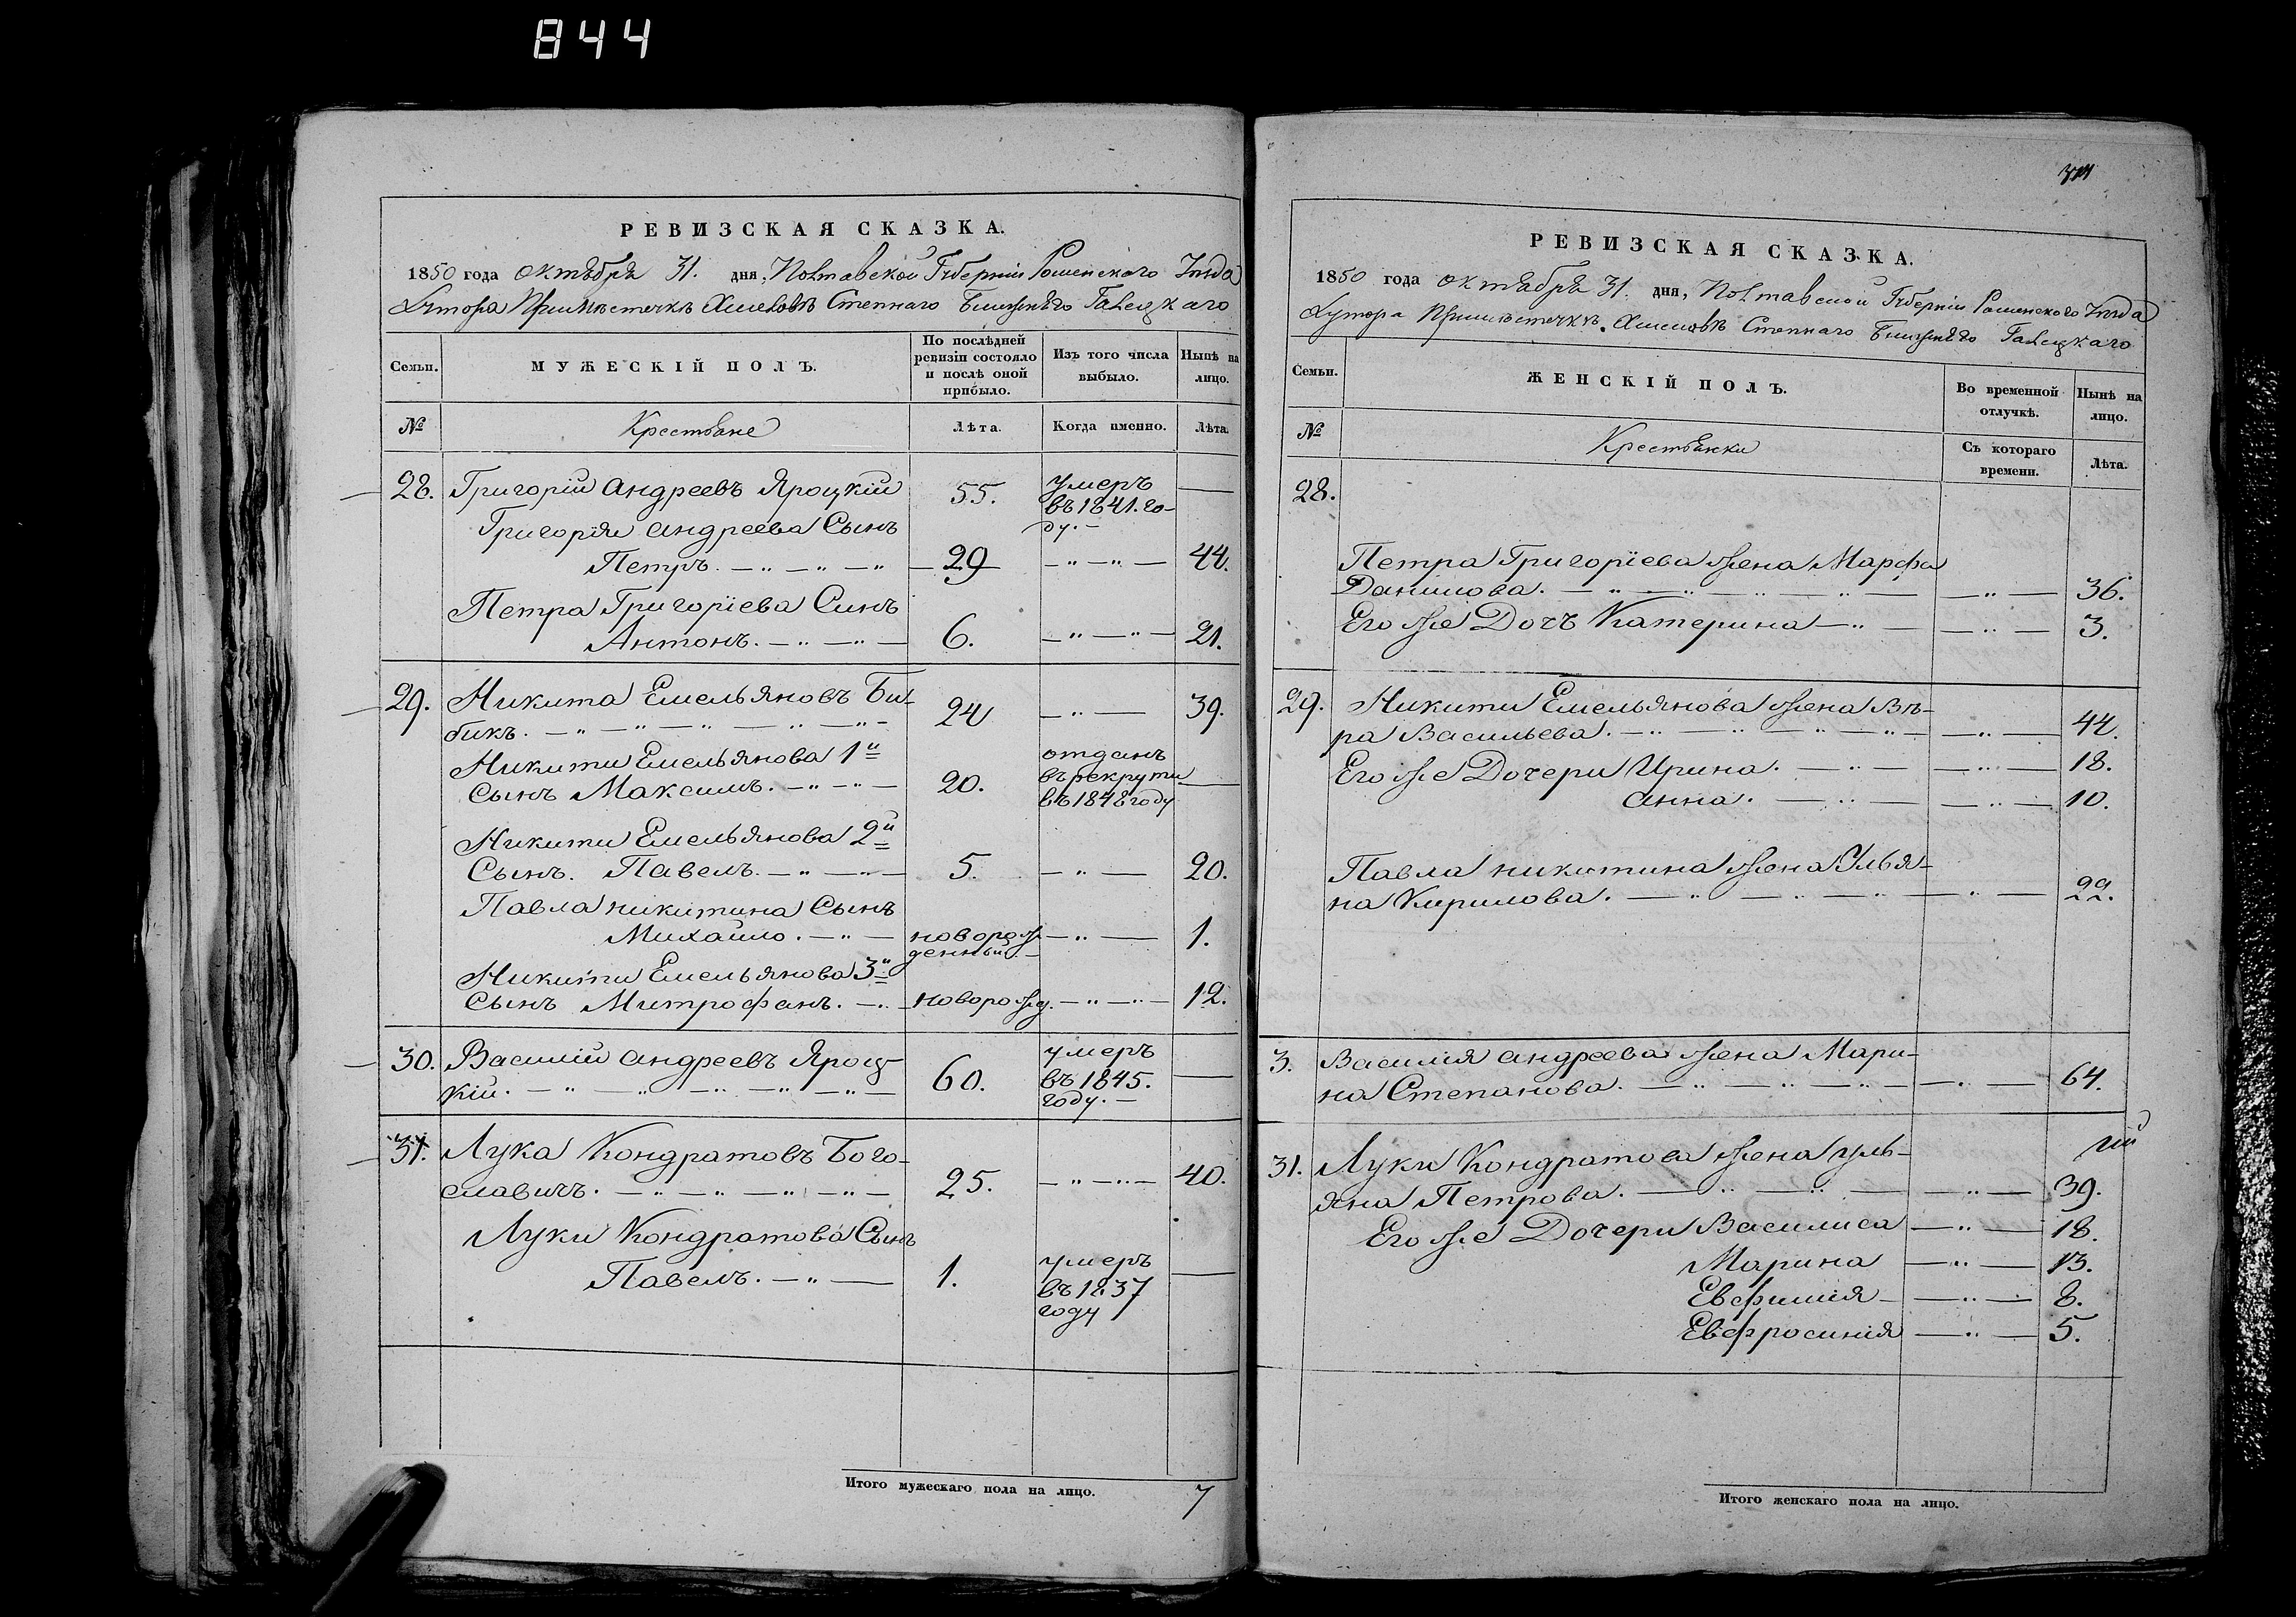 844
РЕВИЗСКАЯ СКАЗКА.
1850 года октября 31. дня, Полтавской Губерніи Роменскаго Уѣзда
Хутора При мѣстечкѣ Хмеловѣ Степнаго бывшаго
Семьи. МУЖЕСКІЙ ПОЛЪ. По послѣдней ревизіи состояло и послѣ оной прибыло. Изъ того числа выбыло. Нынѣ на лицо.
№ Крестьяне Лѣта. Когда именно. Лѣта.
28. Григорій андреевъ Яроцкій 55. умеръ въ 1841. го-
Григорія андреева Сынъ ду.
Петръ. 29 44.
Петра Григоріева Синъ
Антонъ. 6. 21.
29. Никита Емельяновъ Би-
бикъ. 24 39.
Никити Емельянова 1й отданъ
Сынъ Максимъ. 20. въ рекрути
въ 1848 году
Никити Емельянова 2й
Сынъ. Павелъ. 5. 20.
Павла никитина Сынъ
Михайло. новорож- 1.
денный
Никити Емельянова 3й
Сынъ Митрофанъ. новорожд. 12.
30. Василій андреевъ Яроц- умеръ
кій. 60. въ 1845.
году.
31. Лука Кондратовъ Бого-
славичъ. 25. 40.
Луки Кондратова Сынъ
Павелъ. 1. умеръ
въ 1837
году
Итого мужескаго пола на лицо. 7
РЕВИЗСКАЯ СКАЗКА.
1850 года октября 31. дня, Полтавской Губерніи Роменского Уѣзда
Хутора При мѣстечкѣ Хмеловѣ Степнаго бывшаго
Семьи. ЖЕНСКІЙ ПОЛЪ. Во временной отлучкѣ. Нынѣ на лицо.
№ Крестьянки Съ котораго времени. Лѣта.
28.
Петра Григоріева жена Марфа
Данилова. 36.
Его же Дочъ Катерина 3.
29. Никити Емельянова жена Вѣ-
ра Васильева. 44.
Его же Дочери Ирина. 18.
анна. 10.
Павла никитина жена Улья-
на Кирилова. 22.
3. Василія андреева жена Мари-
на Степанова. 64.
31. Луки Кондратова жена уль-
яна Петрова. 39.
Его же Дочери Василиса 18.
Марина 13.
Евфимия 8.
Евфросинія 5.
Итого женскаго пола на лицо.